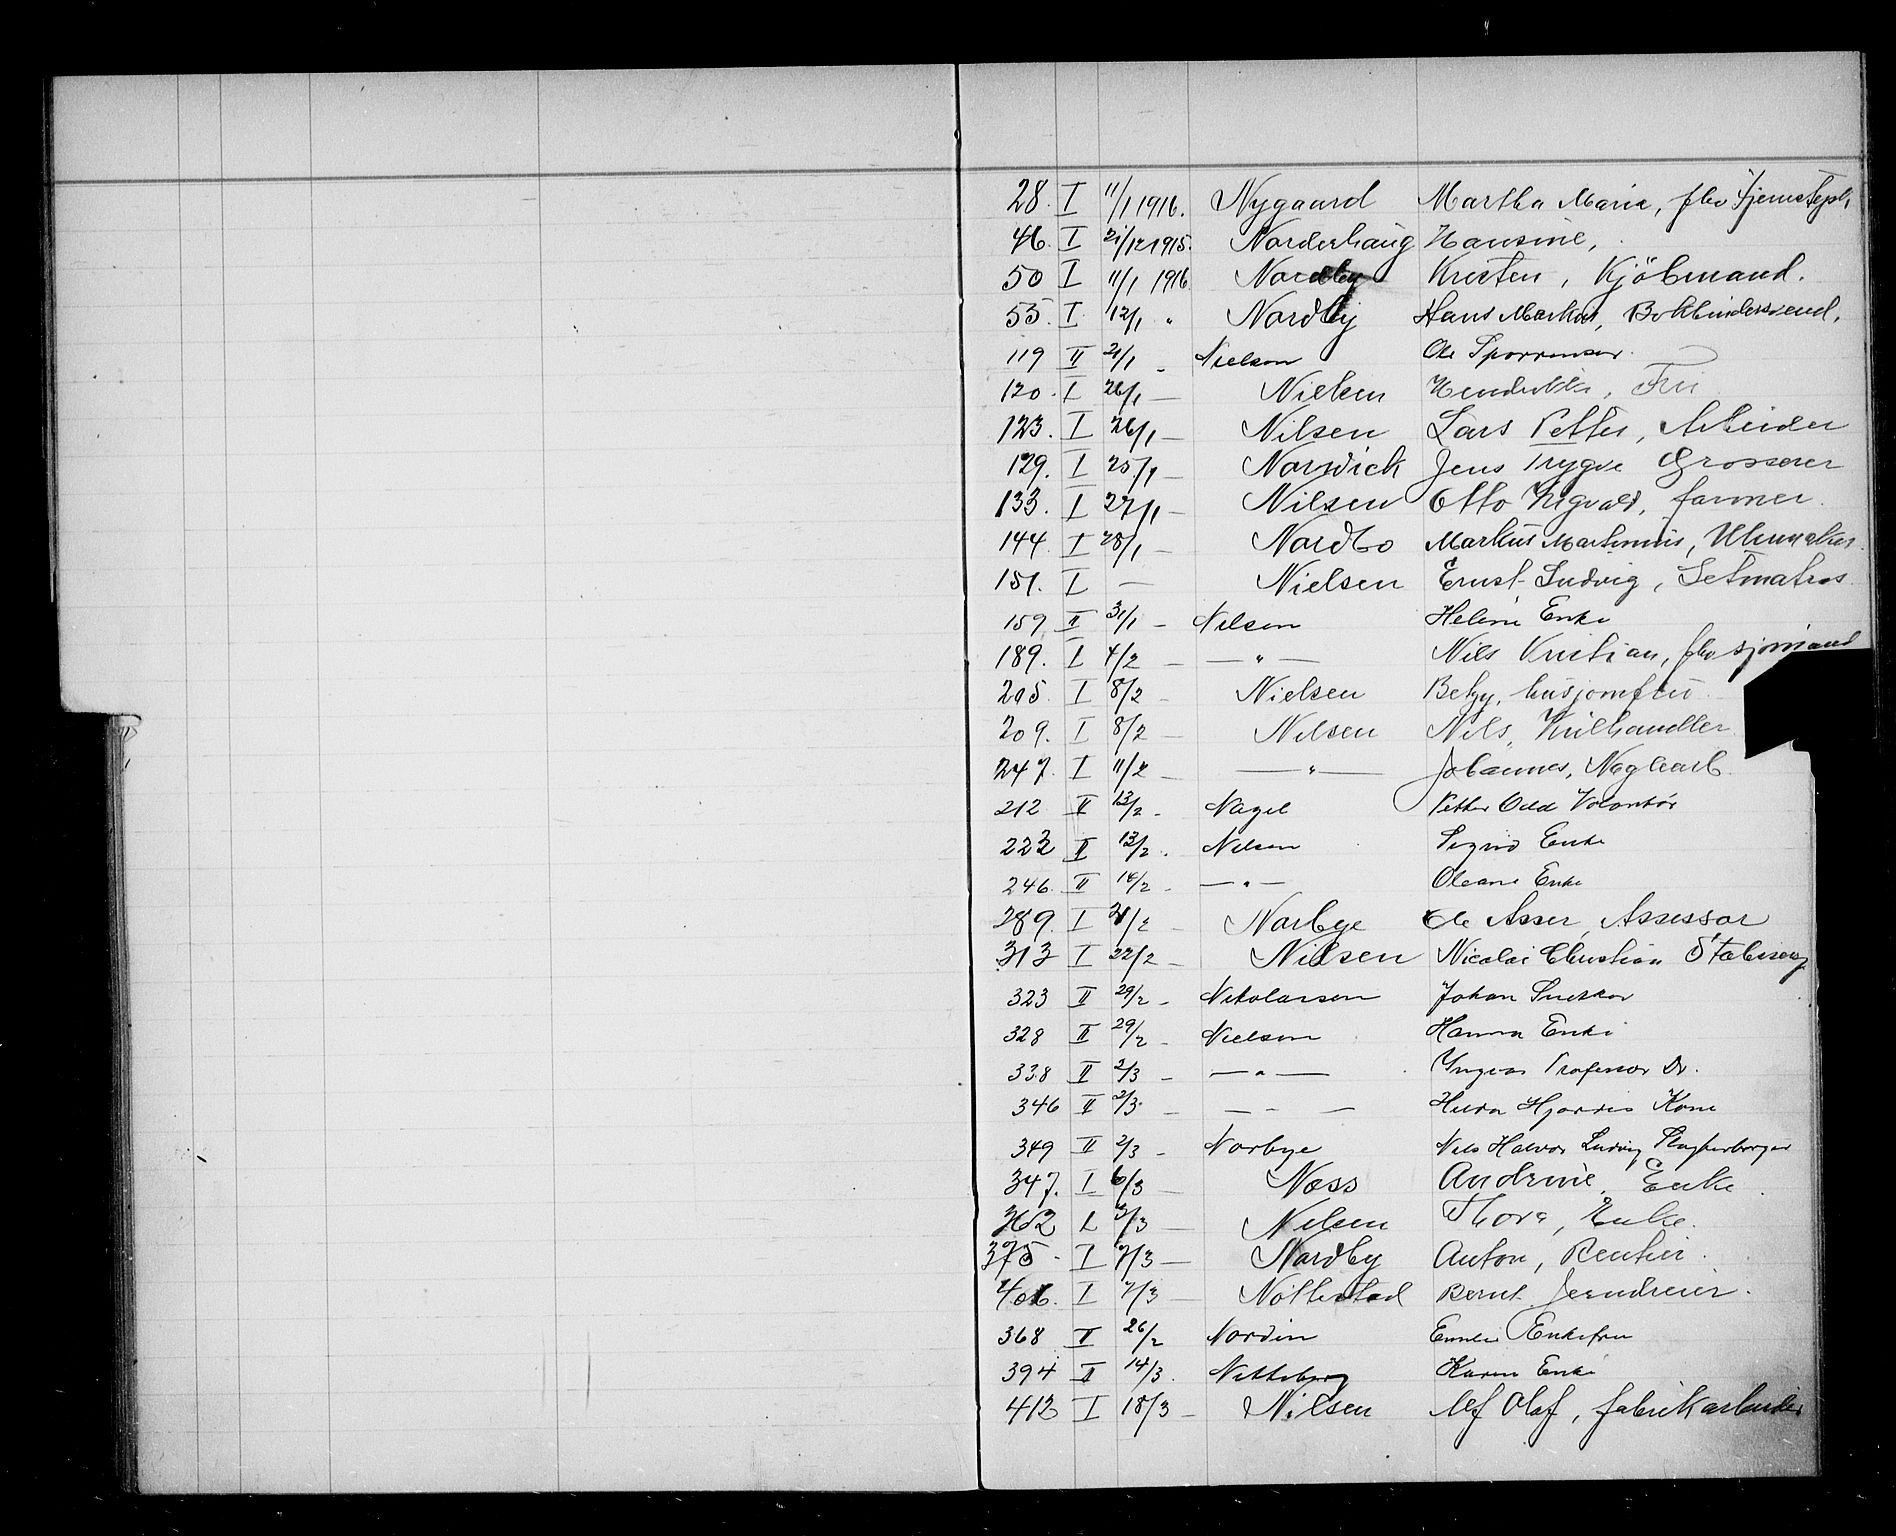 28. I 11/1 1916. Nygaard Martha Maria, fhv
46. I 21/12 1915. Norderhaug Hansine,
50 I 11/1 1916 Nordby Kristen, Kjöbmand.
55. I 12/1 " Nordby Hans Markus, Bokbindersvend.
119 II 21/1 - Nielsen Ole
120. I 26/1 — Nielsen
123. I 26/1 — Nilsen Lars Petter, Arbeider
129. I 25/1 — Narvick Jens Trygve Grosserer
133. I 27/1 — Nilsen Otto Sigvald, farmer.
144. I 28/1 — Nordbo Markus Martinius,
151. I — Nielsen Ernst Ludvig, Letmatros
159 II 31/1 - Nilsen Heline Enke
189. I 4/2 — — " — Nils Kristian, fhv sjømand
205. I 8/2 - Nielsen Betzy, husjomfru.
209. I 8/2 — Nilsen Nils, Kulhandler
247. I 11/2 — — " — Johannes, Naglearb.
212 II 13/2 - Nagel Petter Odd Volontør
223 II 13/2 . Nilsen Sigrid Enke
246. II 14/2 - — " — Oleane Enke
289. I 21/2 - Narbye Ole Asser, Assessor
313 I 22/2 — Nilsen Nicolai Christian
323 II 29/2 - Nikolaisen Johan Snekker
328 II 29/2 - Nielsen Hanna Enke
338 II 2/3 - — " — Yngvar Professor Dr.
346 II 2/3 - — - — Hilda Hjørdis Kone
349 II 2/3 - Norbye Nils Halvor Ludvig
347. I 6/3 — Næss Andrine, Enke.
362 I 3/3 — Nilsen Thora, Enke.
375 - I 7/3 — Nordby Anton, Rentier.
406. I 7/3 — Nøttestad Bernt Jerndreier.
368 II 26/2 Nordin Emilie Enkefru
394 II 14/3. Nitteberg Karen Enke
413 I 18/3 — Nilsen Alf Olaf, fabrikarbeider